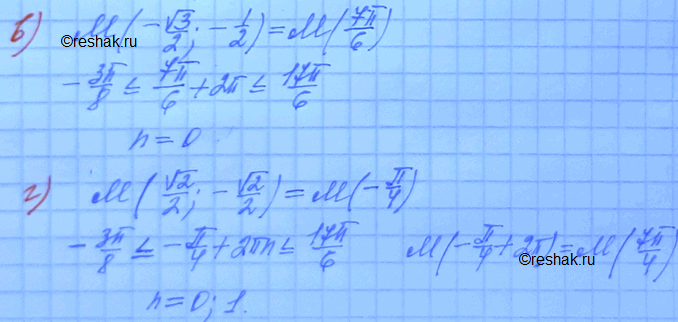 б) M(-√3/2; -1/2) = M(7π/6)
©reshak.ru
-3π/8 ≤ 7π/6 + 2π ≤ 17π/6
n = 0
г) M(√2/2; -√2/2) = M(-π/4)
-3π/8 ≤ -π/4 + 2πn ≤ 17π/6 M(-π/4 + 2π) = M(7π/4)
©reshak.ru
n = 0; 1.